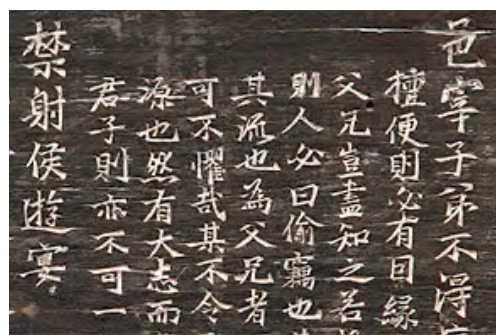 邑宰子弟不淂
擅便則必有囙縁
父兄豈盡知之若
則人必曰偷竊也
其流也為父兄者
可不懼哉其不令
源也然有大志而
君子則亦不可一
禁射侯遊宴